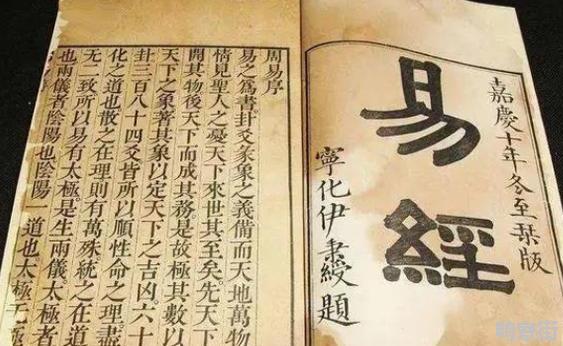 嘉慶十年冬至栞版
易經
寧化伊秉綬題
周易序
易之為書卦爻彖象之義備而天地萬物
情見聖人之憂天下來世其至矣先天下
開其物後天下而成其務是故極其數以
天下之象著其象以定天下之吉凶六十
卦三百八十四爻皆所以順性命之理盡
化之道也散之在理則有萬殊統之在道
无二致所以易有太極是生兩儀太極者
也兩儀者陰陽也陰陽 道也太極无極